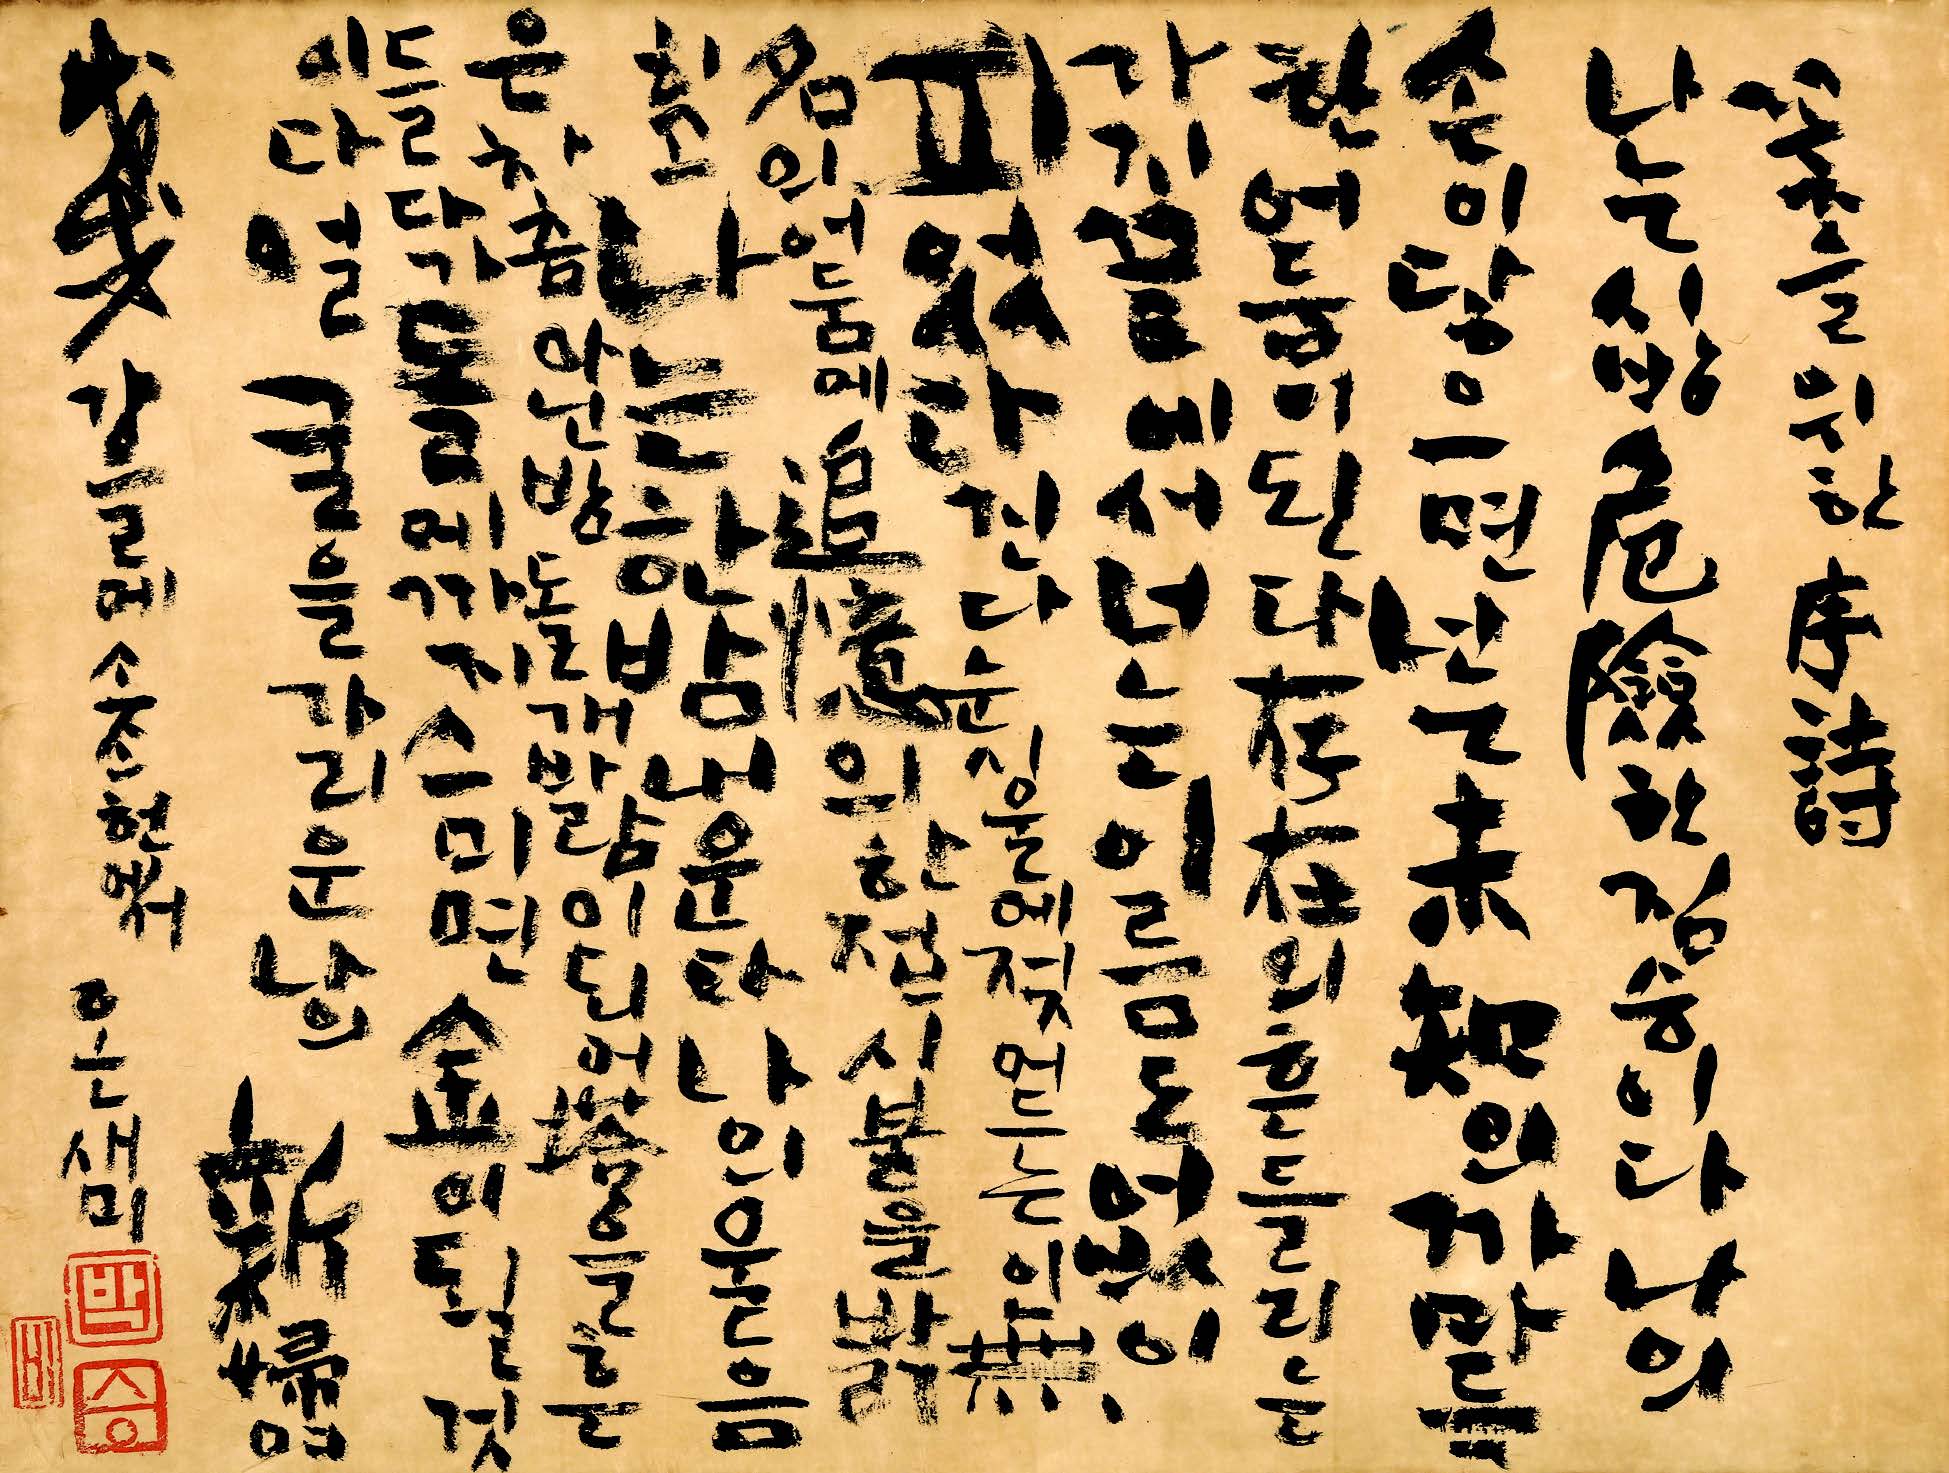 꽃을 위한 序詩
나는 시방 危險한 짐승이다 나의
손이 닿으면 너는 未知의 까마득
한 어둠이 된다 存在의 흔들리는
가지끝에서 너는 이름도 없이
피었다 진다 눈시울에 젖어드는 이 無
名의 어둠에 追憶의 한 접시 불을 밝
히고 나는 한밤내 운다 나의 울음
은 차츰 아닌밤 돌개바람이 되어 塔을 흔
들다가 돌에까지 스미면 金이 될 것
이다 얼굴을 가리운 나의 新婦여
소조헌에서 온새미